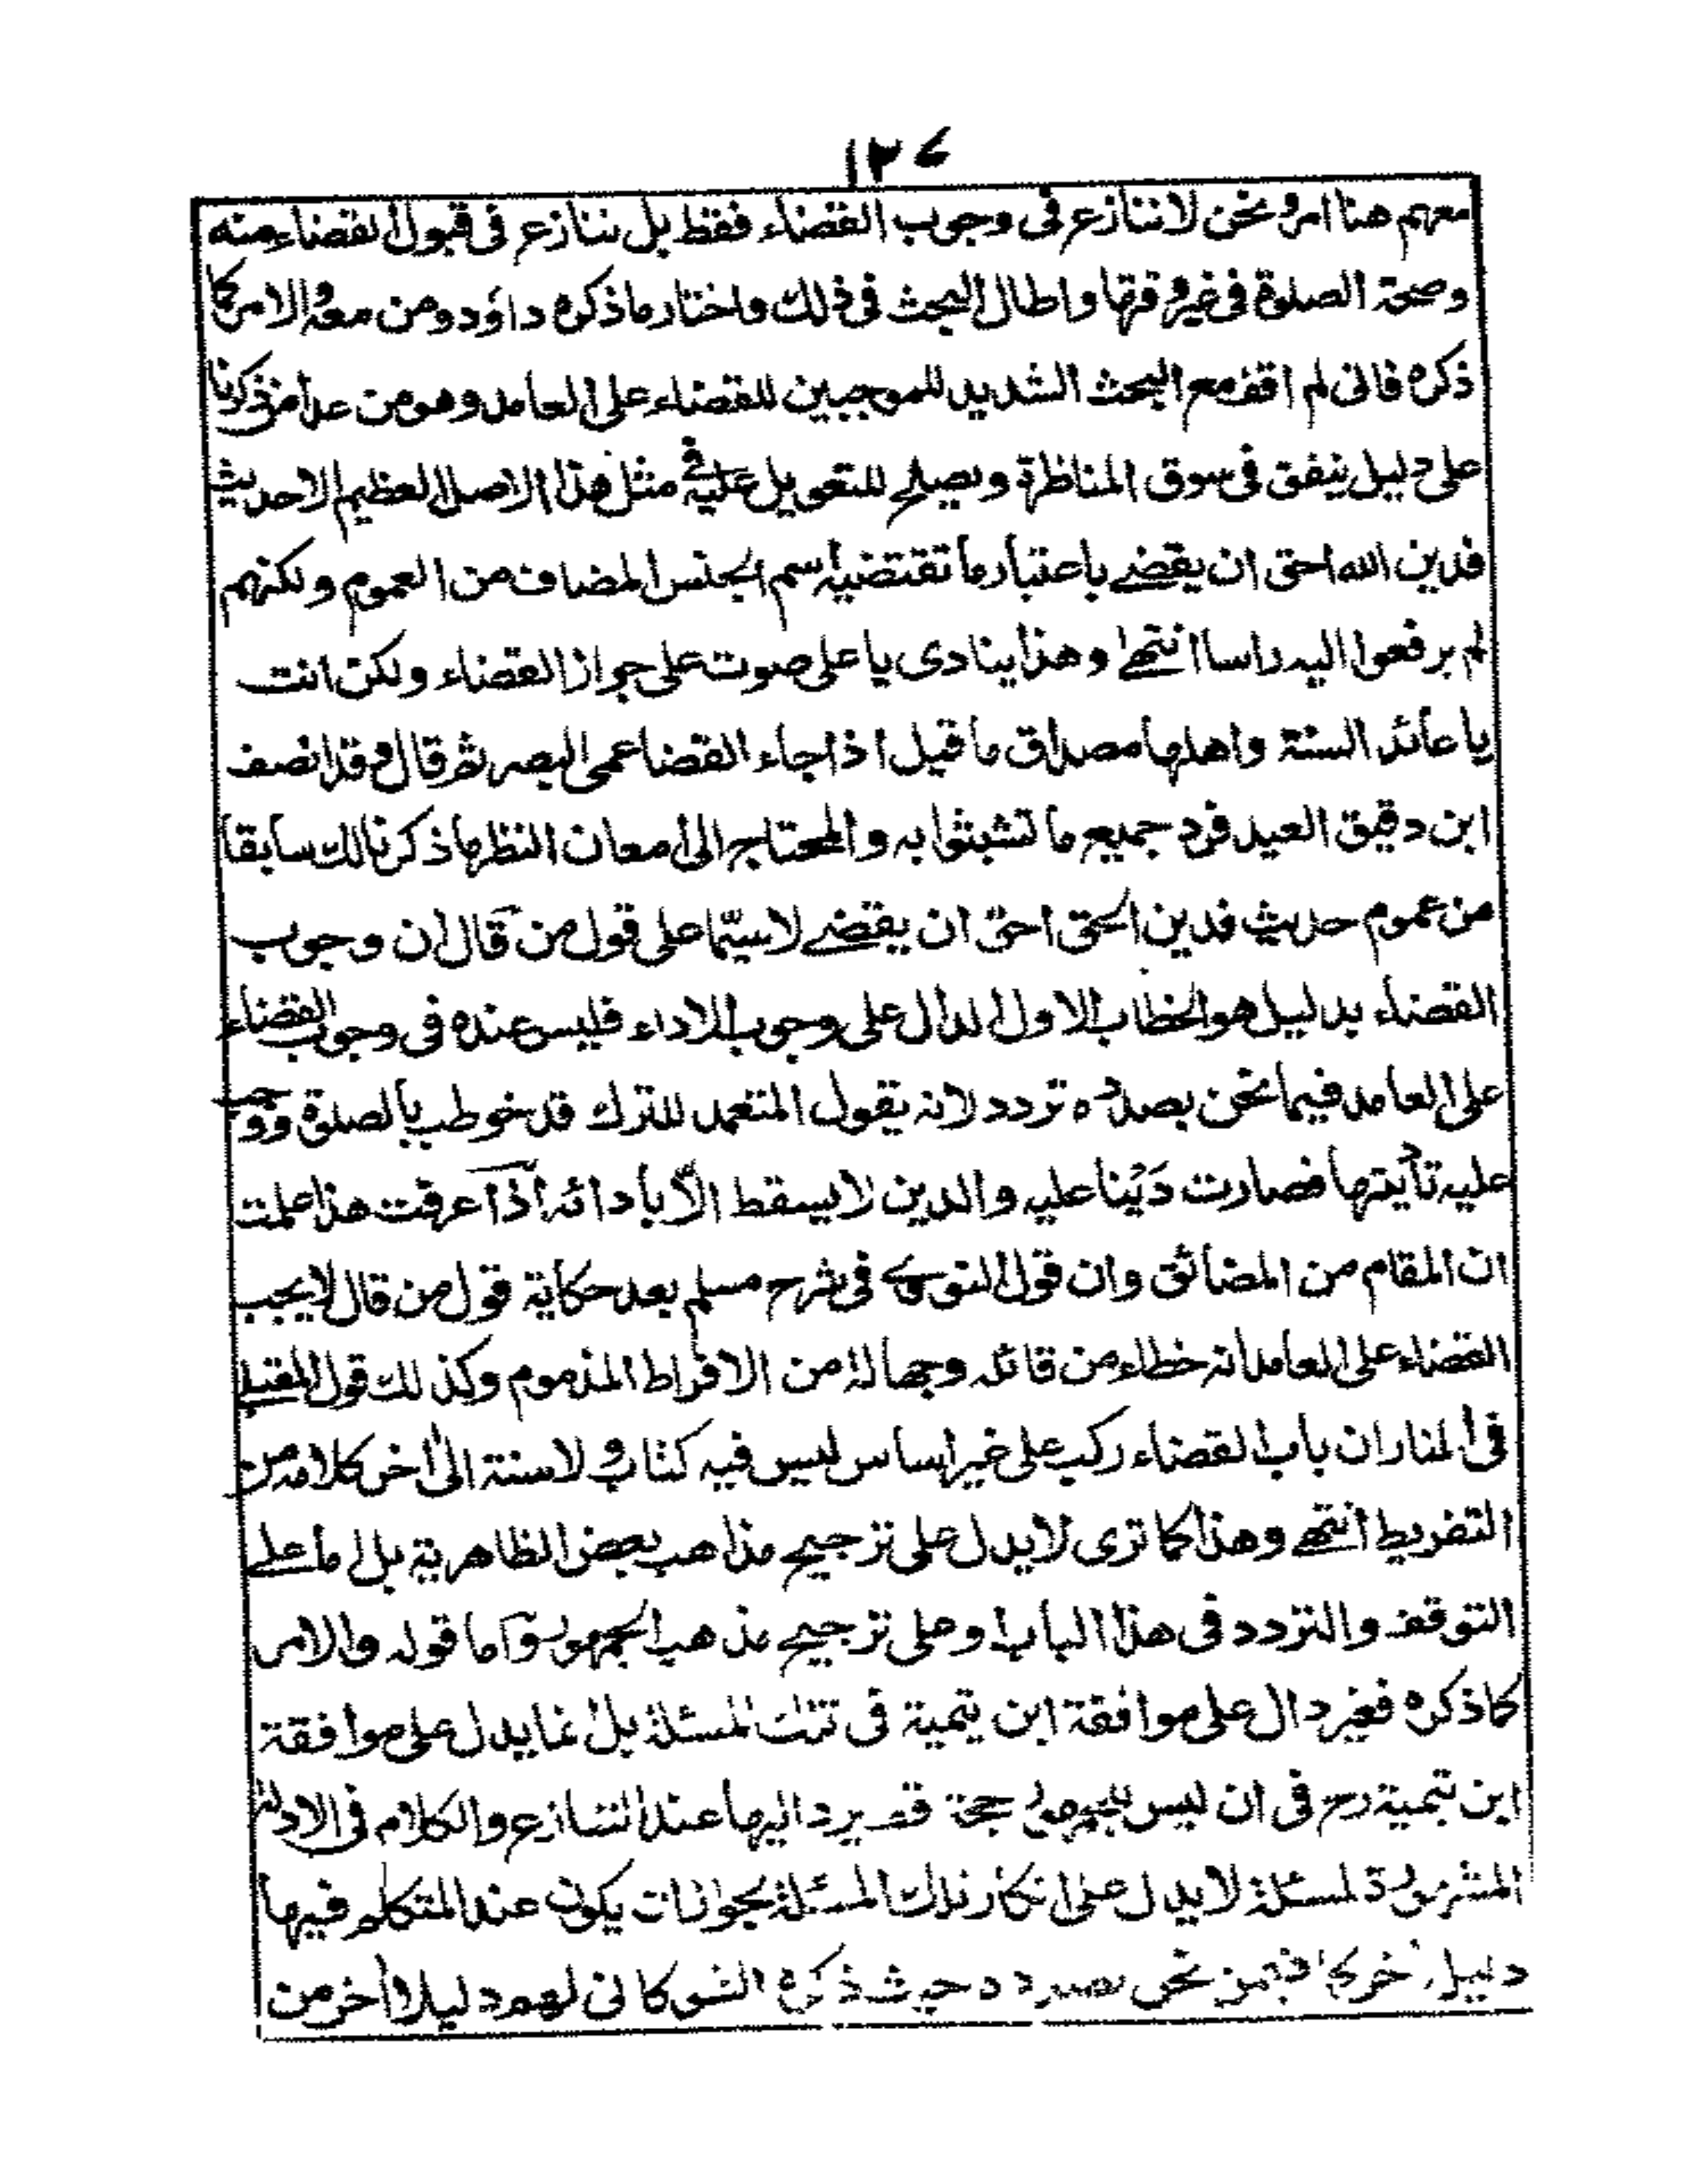 ١٢٧
معهم هنا امر ونحن لا ننازع فى وجوب القضاء فقط بل ننازع فى قبول القضاء منه
وصحة الصلوة فى غير وقتها واطال البحث فى ذلك واختار ما ذكره داؤد ومن معه والامر كما
ذكره فانى لم اقف مع البحث الشديد للموجبين للقضاء على العامد وهو من عدا من ذكرنا
على دليل ينفق فى سوق المناظرة ويصلح للتعويل عليه فى مثل هذا الاصل العظيم الا حديث
فدين الله احق ان يقضے باعتبار ما تقتضيه اسم الجنس المضاف من العموم ولكنهم
لم يرفعوا اليه راسا انتهے وهذا ينادى باعلى صوت على جواز القضاء ولكن انت
يا عائد السنة واهلها مصداق ما قيل اذا جاء القضا عمى البصر ثم قال وقد انصف
ابن دقيق العيد فرد جميع ما تشبثوا به والمحتاج الى امعان النظر ما ذكرنا لك سابقا
من عموم حديث فدين الحق احق ان يقضے لا سيّما على قول من قال ان وجوب
القضاء بدليل هو الخطاب الاول الدال على وجوب الاداء فليس عنده فى وجوب القضاء
على العامد فيما نحن بصدده تردد لانه يقول المتعمد للترك قد خوطب بالصلوة ووجب
عليه تأيتها فصارت دَيْنا عليه والدين لا يسقط الّا بادائه اذا عرفت هذا علمت
ان المقام من المضائق وان قول النووے فى شرح مسلم بعد حكاية قول من قال لا يجب
القضاء على العامد انه خطاء من قائله وجهالة من الافراط المذموم وكذلك قول المقبلے
فى المنار ان باب القضاء ركب على غير اساس ليس فيه كتاب ولا سنة الى اخر كلامه من
التفريط انتهے وهذا كما ترى لا يدل على ترجيح مذاهب بعض الظاهرية بل اما على
التوقف والتردد فى هذا الباب او على ترجيح مذهب الجمهور واما قوله والامر
كما ذكره فغير دال على موافقة ابن تيمية فى تلك المسئلة بل انما يدل على موافقة
ابن تيمية رح فى ان ليس للجمهور حجة قط يرد اليها عند التنازع والكلام فى الادلة
المشهورة لمسئلة لا يدل على انكار تلك المسئلة بجواز ان يكون عند المتكلم فيها
دليل اخر كما فيمن نحن بصدده حيث ذكر الشوكانى لهم دليلا اخر من